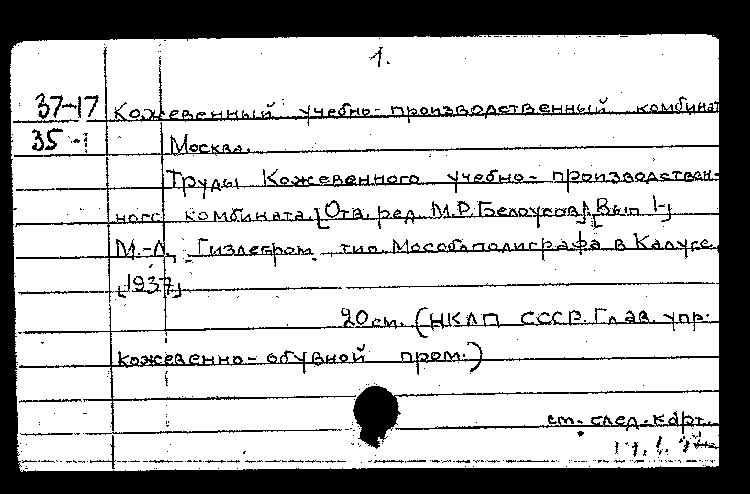 1.
37-17 Кожевенный учебно-производственный комбинат
35-1 Москва.
Труды Кожевенного учебно-производствен-
ного комбината. [Отв. ред. М.Р. Белоусов] [Вып 1-]
М.-Л., Гизлегпром, тип. Мособлполиграфа в Калуге,
[1937]
20 см. (НКЛП СССР. Глав. упр.
кожевенно-обувной пром.)
см. след. карт.